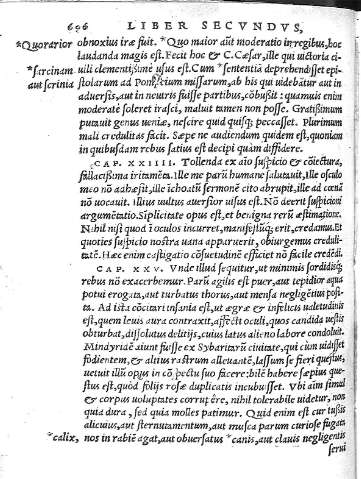 606 LIBER SECVNDVS,
*Quorarior obnoxius iræ fuit. *Quo maior aūt moderatio in regibus, hoc
laudanda magis est. Fecit hoc & C. Cæsar, ille qui uictoria ci-
*sarcinam uili clementißime usus est. Cum *sententiā deprehendisset epi-
aut scrinia stolarum ad Pompeium missarum, ab his qui uidebātur aut in
aduersis, aut in neutris fuisse partibus, cōbußit: quamuis enim
moderatè soleret irasci, maluit tamen non posse. Gratißimum
putauit genus ueniæ, nescire quid quisq; peccasset. Plurimum
mali credulitas facit. Sæpe ne audiendum quidem est, quoniam
in quibusdam rebus satius est decipi quàm diffidere.
CAP. XXIIII. Tollenda ex aīo suspicio & cōiectura,
fallacißima irritamēta. Ille me parū humane salutauit, Ille oscu-
lo meo nō adhæsit, ille ichoatū sermonē citò abrupit, ille ad cœnā
nō uocauit. Illius uultus auersior uisus est. Nō deerit suspicioni
argumētatio. Sīplicitate opus est, et benigna rerū æstimatione.
Nihil nisi quod ī oculos incurret, manifestūq; erit, credamus. Et
quoties suspicio nostra uana apparuerit, obiurgemus creduli-
tatē. Hæc enim castigatio cōsuetudinē efficiet nō facilè credēdi.
CAP. XXV. Vnde illud sequitur, ut minimis sordidisq;
rebus nō exacerbemur. Parū agilis est puer, aut tepidior aqua
potui erogata, aut turbatus thorus, aut mensa negligētius posi-
ta. Ad ista cōcitari insania est, ut ægræ & infelicis ualetudinis
est, quem leuis aura contraxit, affecti oculi, quos candida uestis
obturbat, dissolutus delitijs, cuius latus alieno labore condoluit.
Mindyridē aiunt fuisse ex Sybaritarū ciuitate, qui cùm uidisset
fodientem, & altius rastrum alleuantē, lassum se fieri questus,
uetuit illū opus in cōspectu suo facere: bilē habere sæpius ques-
tus est, quòd folijs rosæ duplicatis incubuisset. Vbi aīm simul
& corpus uoluptates corrupēre, nihil tolerabile uidetur, non
quia dura, sed quia molles patimur. Quid enim est cur tußis
alicuius, aut sternutamentum, aut musca parum curiose fugata
*calix, nos in rabiē agat, aut obuersatus *canis, aut clauis negligentis
serui